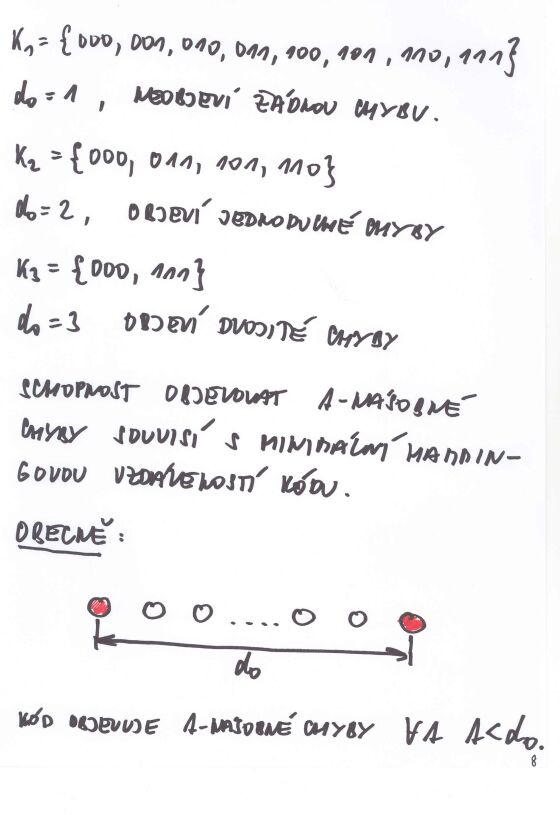 K₁ = {000, 001, 010, 011, 100, 101, 110, 111}
d₀ = 1, NEOBJEVÍ ŽÁDNOU CHYBU.
K₂ = {000, 011, 101, 110}
d₀ = 2, OBJEVÍ JEDNODUCHÉ CHYBY
K₃ = {000, 111}
d₀ = 3 OBJEVÍ DVOJITÉ CHYBY
SCHOPNOST OBJEVOVAT A-NÁSOBNÉ
CHYBY SOUVISÍ S MINIMÁLNÍ HAMMIN-
GOVOU VZDÁLENOSTÍ KÓDU.
OBECNĚ:
....
d₀
KÓD OBJEVUJE A-NÁSOBNÉ CHYBY ∀A A<d₀.
8